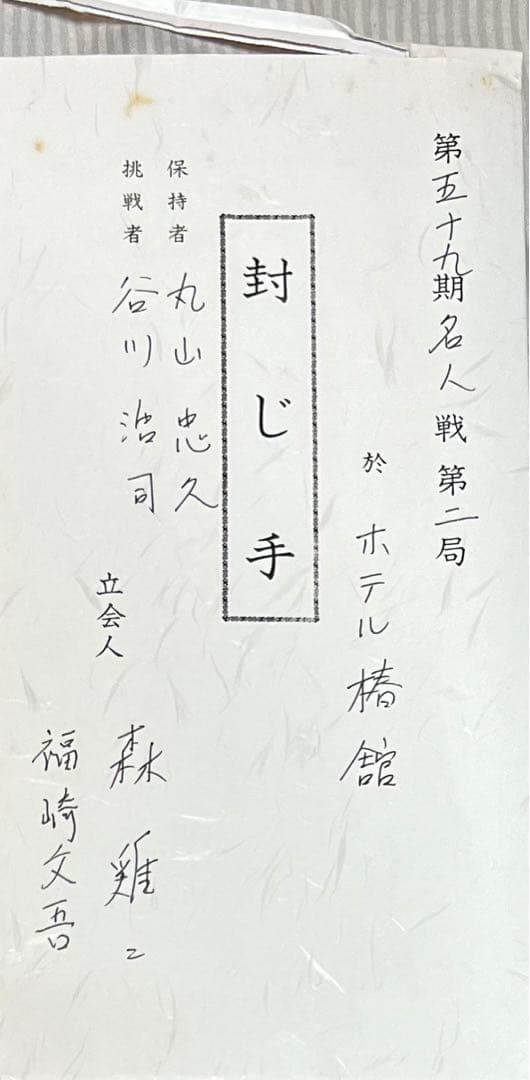 第五十九期名人戦第二局
於 ホテル椿館
封じ手
保持者 丸山忠久
挑戦者 谷川浩司
立会人 森雞二
福崎文吾